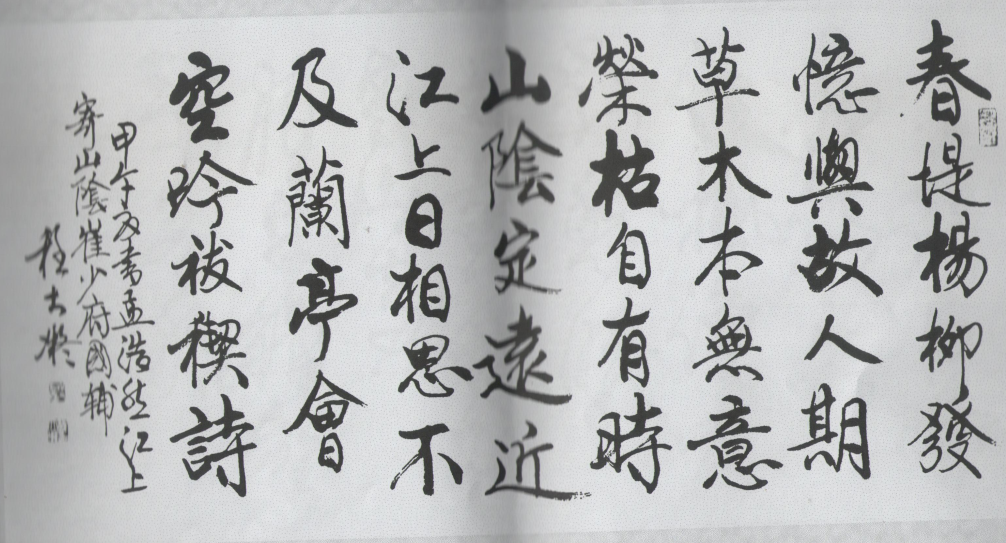 春堤楊柳發
憶與故人期
草木本無意
榮枯自有時
山陰定遠近
江上日相思不
及蘭亭會
空吟祓禊詩
甲午夏書孟浩然江上
寄山陰崔少府國輔